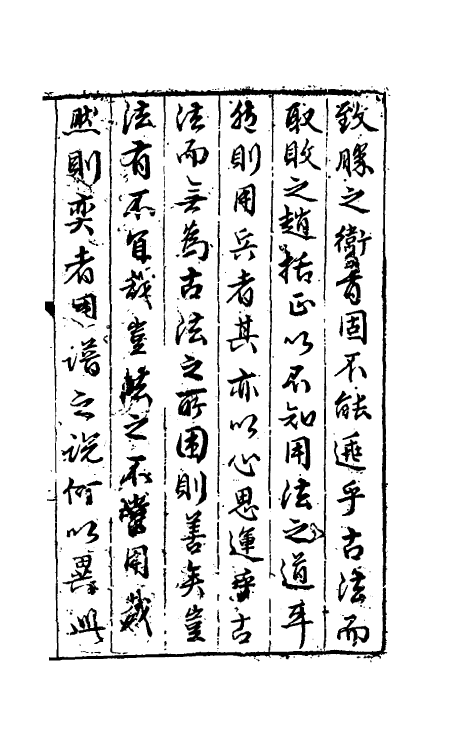 致勝之衛霍固不能逃乎古法而
取敗之趙括正以不知用法之道耳
然則用兵者其亦以心思運乎古
法而無為古法之所囿則善矣豈
法有不負哉豈法之不當用哉
然則奕者用譜之說何以異此